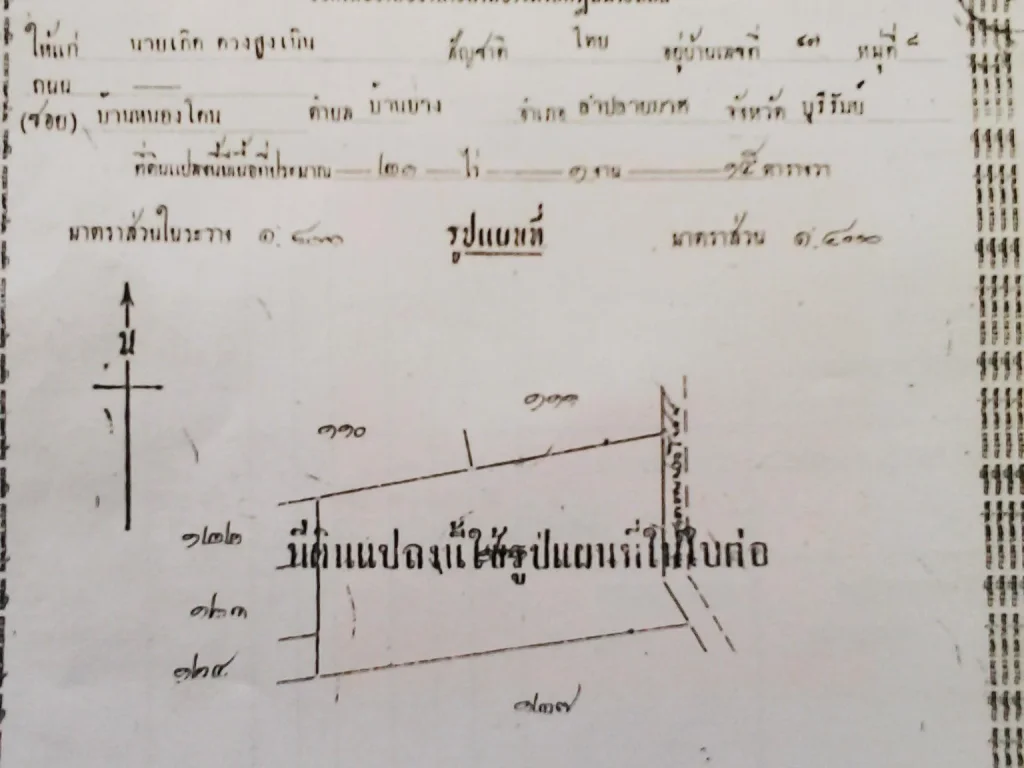 ให้แก่ นายเกิด ดวงสูงเนิน สัญชาติ ไทย อยู่บ้านเลขที่ ๔๗ หมู่ที่ ๘
ถนน
(ซอย) บ้านหนองโดน ตำบล บ้านยาง อำเภอ ลำปลายมาศ จังหวัด บุรีรัมย์
ที่ดินแปลงนี้มีเนื้อที่ประมาณ ๒๑ ไร่ ๑ งาน ๑๕ ตารางวา
มาตราส่วนในระวาง ๑: รูปแผนที่ มาตราส่วน ๑:
น
๑๑๑
๑๑๐
๑๒๒
ที่ดินแปลงนี้ใช้รูปแผนที่ในใบต่อ
๑๒๓
๑๒๔
๑๓๗